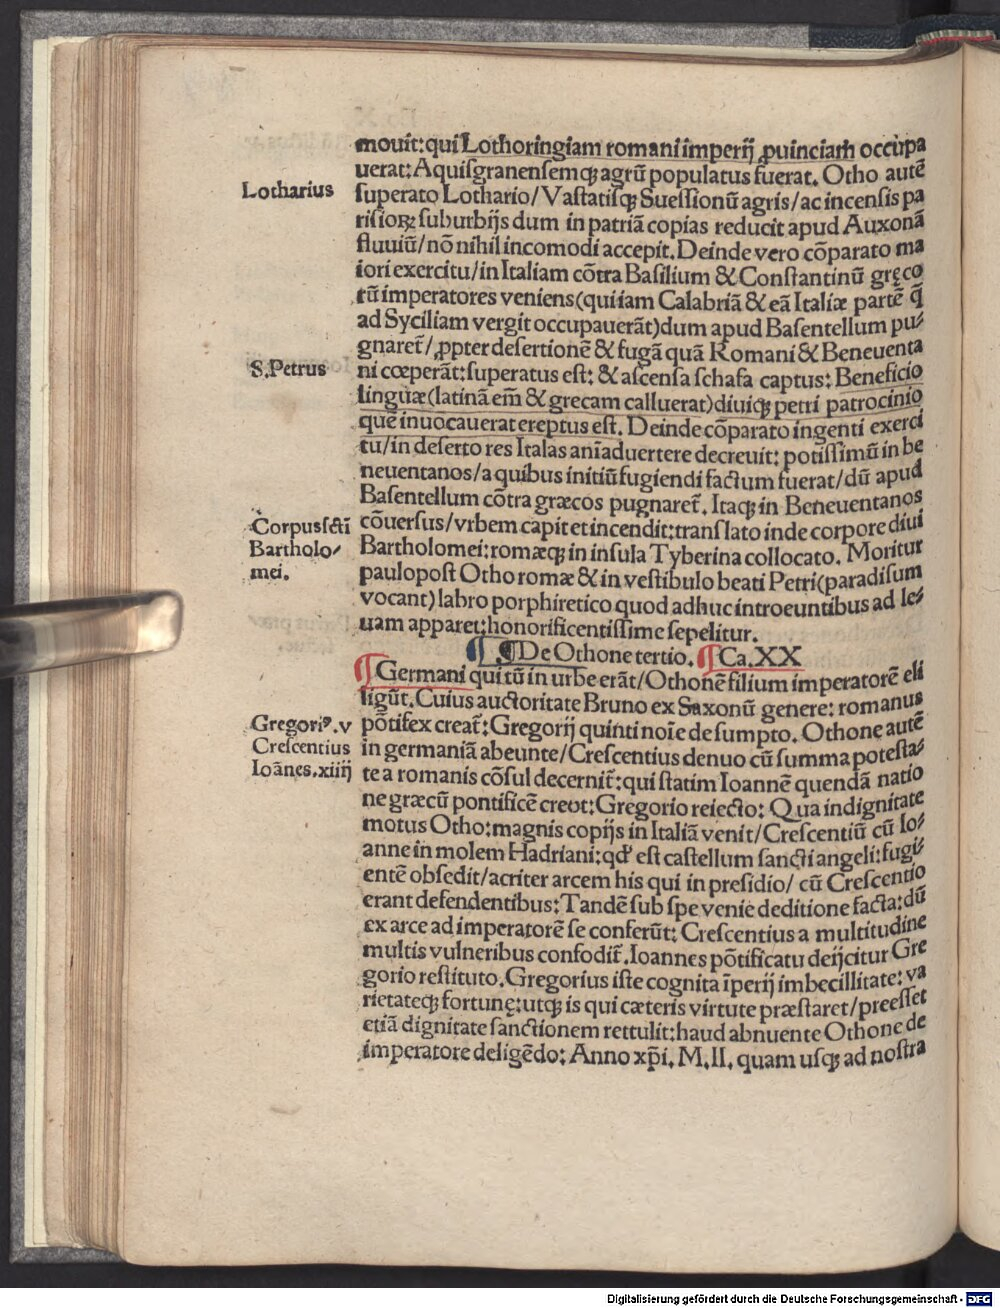 mouit:qui Lothoringiam romani imperij ꝓuinciam occupa
uerat:Aquisgranensemqꝫ agrū populatus fuerat. Otho autē
Lotharius
superato Lothario/Vastatisqꝫ Suessionū agris/ac incensis pa
risioꝝ suburbijs dum in patriā copias reducit apud Auxonā
fluuiū/nō nihil incomodi accepit. Deinde vero cōparato ma
iori exercitu/in Italiam cōtra Basilium & Constantinū gręco
rū imperatores veniens(qui iam Calabriā & eā Italiæ partē q̄
ad Syciliam vergit occupauerāt)dum apud Basentellum pu⸗
gnaret̄/ꝓpter desertionē & fugā quā Romani & Beneuenta
S.Petrus
ni cœperāt:superatus est: & ascensa schafa captus: Beneficio
linguæ(latinā em̄ & grecam calluerat)diuiqꝫ petri patrocinio
que inuocauerat ereptus est. Deinde cōparato ingenti exerci
tu/in deserto res Italas aniaduertere decreuit: potissimū in be
neuentanos/a quibus initiū fugiendi factum fuerat/dū apud
Basentellum cōtra græcos pugnaret̄. Itaqꝫ in Beneuentanos
Corpus sc̄ti
Bartholo⸗
mei.
cōuersus/vrbem capit et incendit:translato inde corpore diui
Bartholomei:romæqꝫ in insula Tyberina collocato. Moritur
paulopost Otho romæ & in vestibulo beati Petri(paradisum
vocant)labro porphiretico quod adhuc introeuntibus ad le⸗
uam apparet:honorificentissime sepelitur.
¶ De Othone tertio. ¶ Ca.XX
¶ Germani qui tū in urbe erāt/Othonē filium imperatorē eli
ligūt. Cuius auctoritate Bruno ex Saxonū genere: romanus
Gregoriꝰ.v
Crescentius
Ioānes.xiiij
pōtifex creat̄:Gregorij quinti noīe desumpto. Othone autē
in germaniā abeunte/Crescentius denuo cū summa potesta⸗
te a romanis cōsul decernit̄:qui statim Ioannē quendā natio
ne græcū pontificē creat:Gregorio reiecto: Qua indignitate
motus Otho:magnis copijs in Italiā venit/Crescentiū cū Io⸗
anne in molem Hadriani:qd' est castellum sancti angeli:fugi⸗
entē obsedit/acriter arcem his qui in presidio/ cū Crescentio
erant defendentibus:Tandē sub spe venie deditione facta:dū
ex arce ad imperatorē se conferūt: Crescentius a multitudine
multis vulneribus confodit̄. Ioannes pōtificatu deijcitur Gre
gorio restituto. Gregorius iste cognita īperij imbecillitate: va
rietateqꝫ fortunę:utqꝫ is qui cæteris virtute præstaret/preesset
etiā dignitate sanctionem rettulit:haud abnuente Othone de
imperatore deligēdo: Anno xp̄i. M.II. quam usqꝫ ad nostra
Digitalisierung gefördert durch die Deutsche Forschungsgemeinschaft - DFG